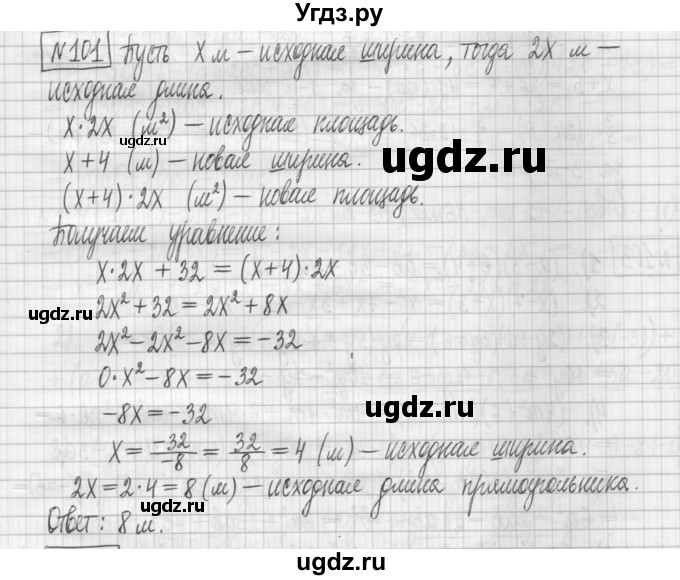 Угдз.ру
№101 Пусть x м – исходная ширина, тогда 2x м –
исходная длина.
x·2x (м²) – исходная площадь.
ugdz.ru
x+4 (м) – новая ширина.
ugdz.ru
(x+4)·2x (м²) – новая площадь.
Получаем уравнение:
x·2x + 32 = (x+4)·2x
ugdz.ru
2x² + 32 = 2x² + 8x
ugdz.ru
2x² – 2x² – 8x = –32
0·x² – 8x = –32
–8x = –32
ugdz.ru
x = –32/–8 = 32/8 = 4 (м) – исходная ширина.
2x = 2·4 = 8 (м) – исходная длина прямоугольника.
ugdz.ru
Ответ: 8 м.
ugdz.ru
ugdz.ru